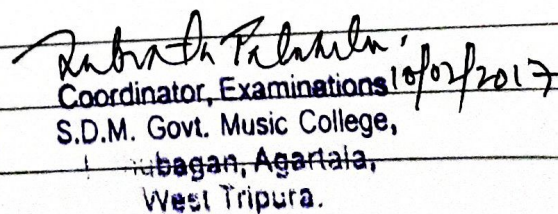 Coordinator, Examinations 10/02/2017
S.D.M. Govt. Music College,
Agartala,
West Tripura.